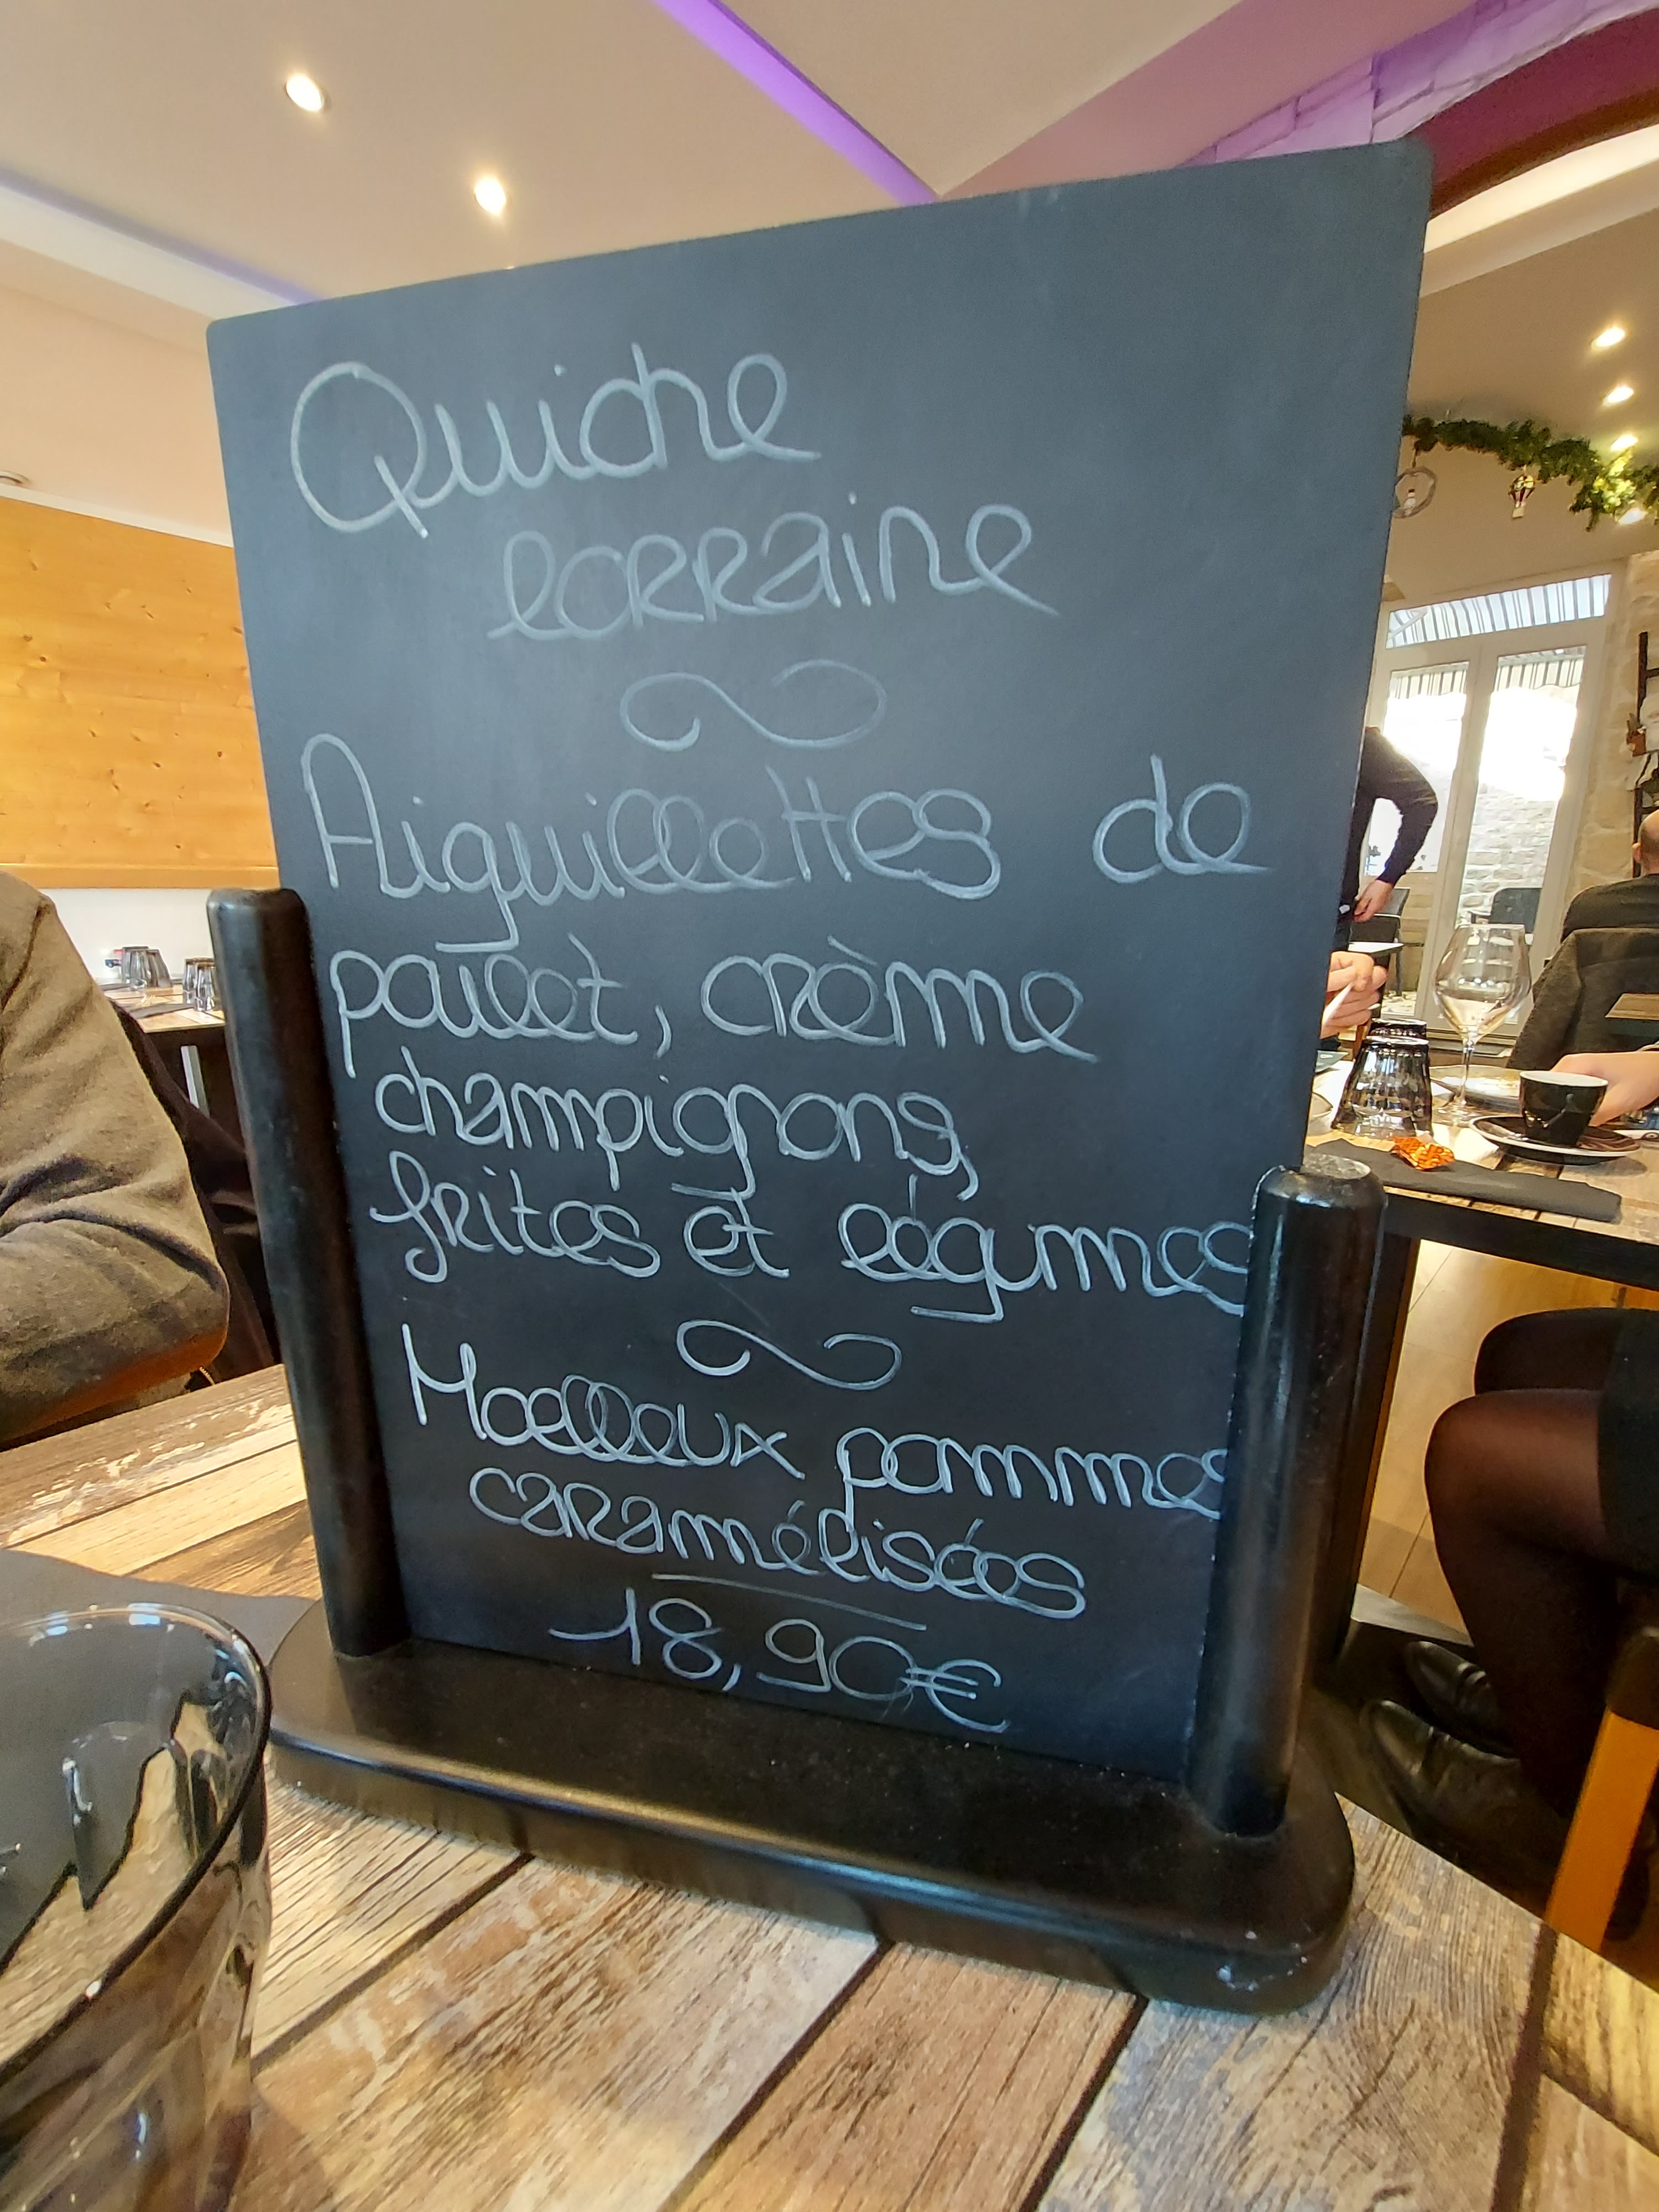 Quiche
lorraine
Aiguillettes de
poulet, crème
champignons,
frites et légumes
Moelleux pommes
caramélisées
18,90€